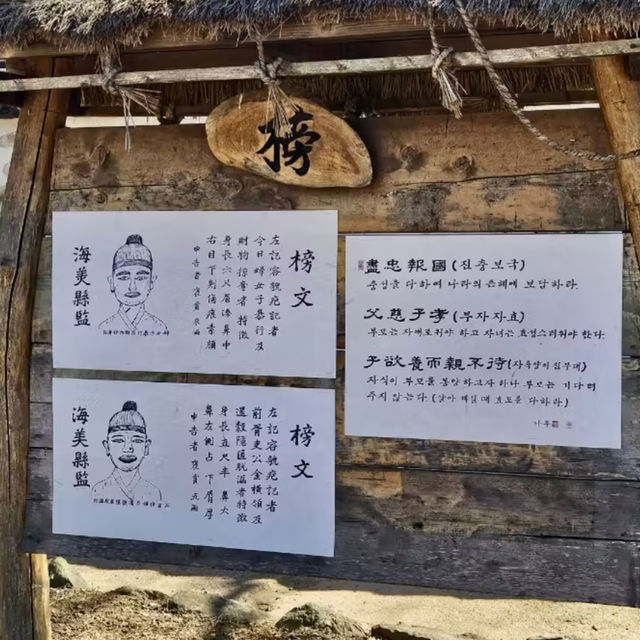 榜
榜文
左記容貌疤記者
今日婦女子暴行及
財物掠奪者 特徵
身長六尺 眉漆 鼻中
右目下刺傷痕 季顔
申告者 褒賞
海美縣監
榜文
左記容貌疤記者
前胥吏公金橫領及
還穀隱匿脫漏者特徵
身長五尺半 鼻大
鼻左側占 下眉厚
申告者 褒賞 五兩
海美縣監
盡忠報國 (진충보국)
충성을 다하여 나라의 은혜에 보답하라.
父慈子孝 (부자자효)
부모는 자애로워야 하고 자녀는 효성스러워야 한다.
子欲養而親不待 (자욕양이친부대)
자식이 부모를 봉양하고자 하나 부모는 기다려
주지 않는다. (살아 계실 때 효도를 다하라)